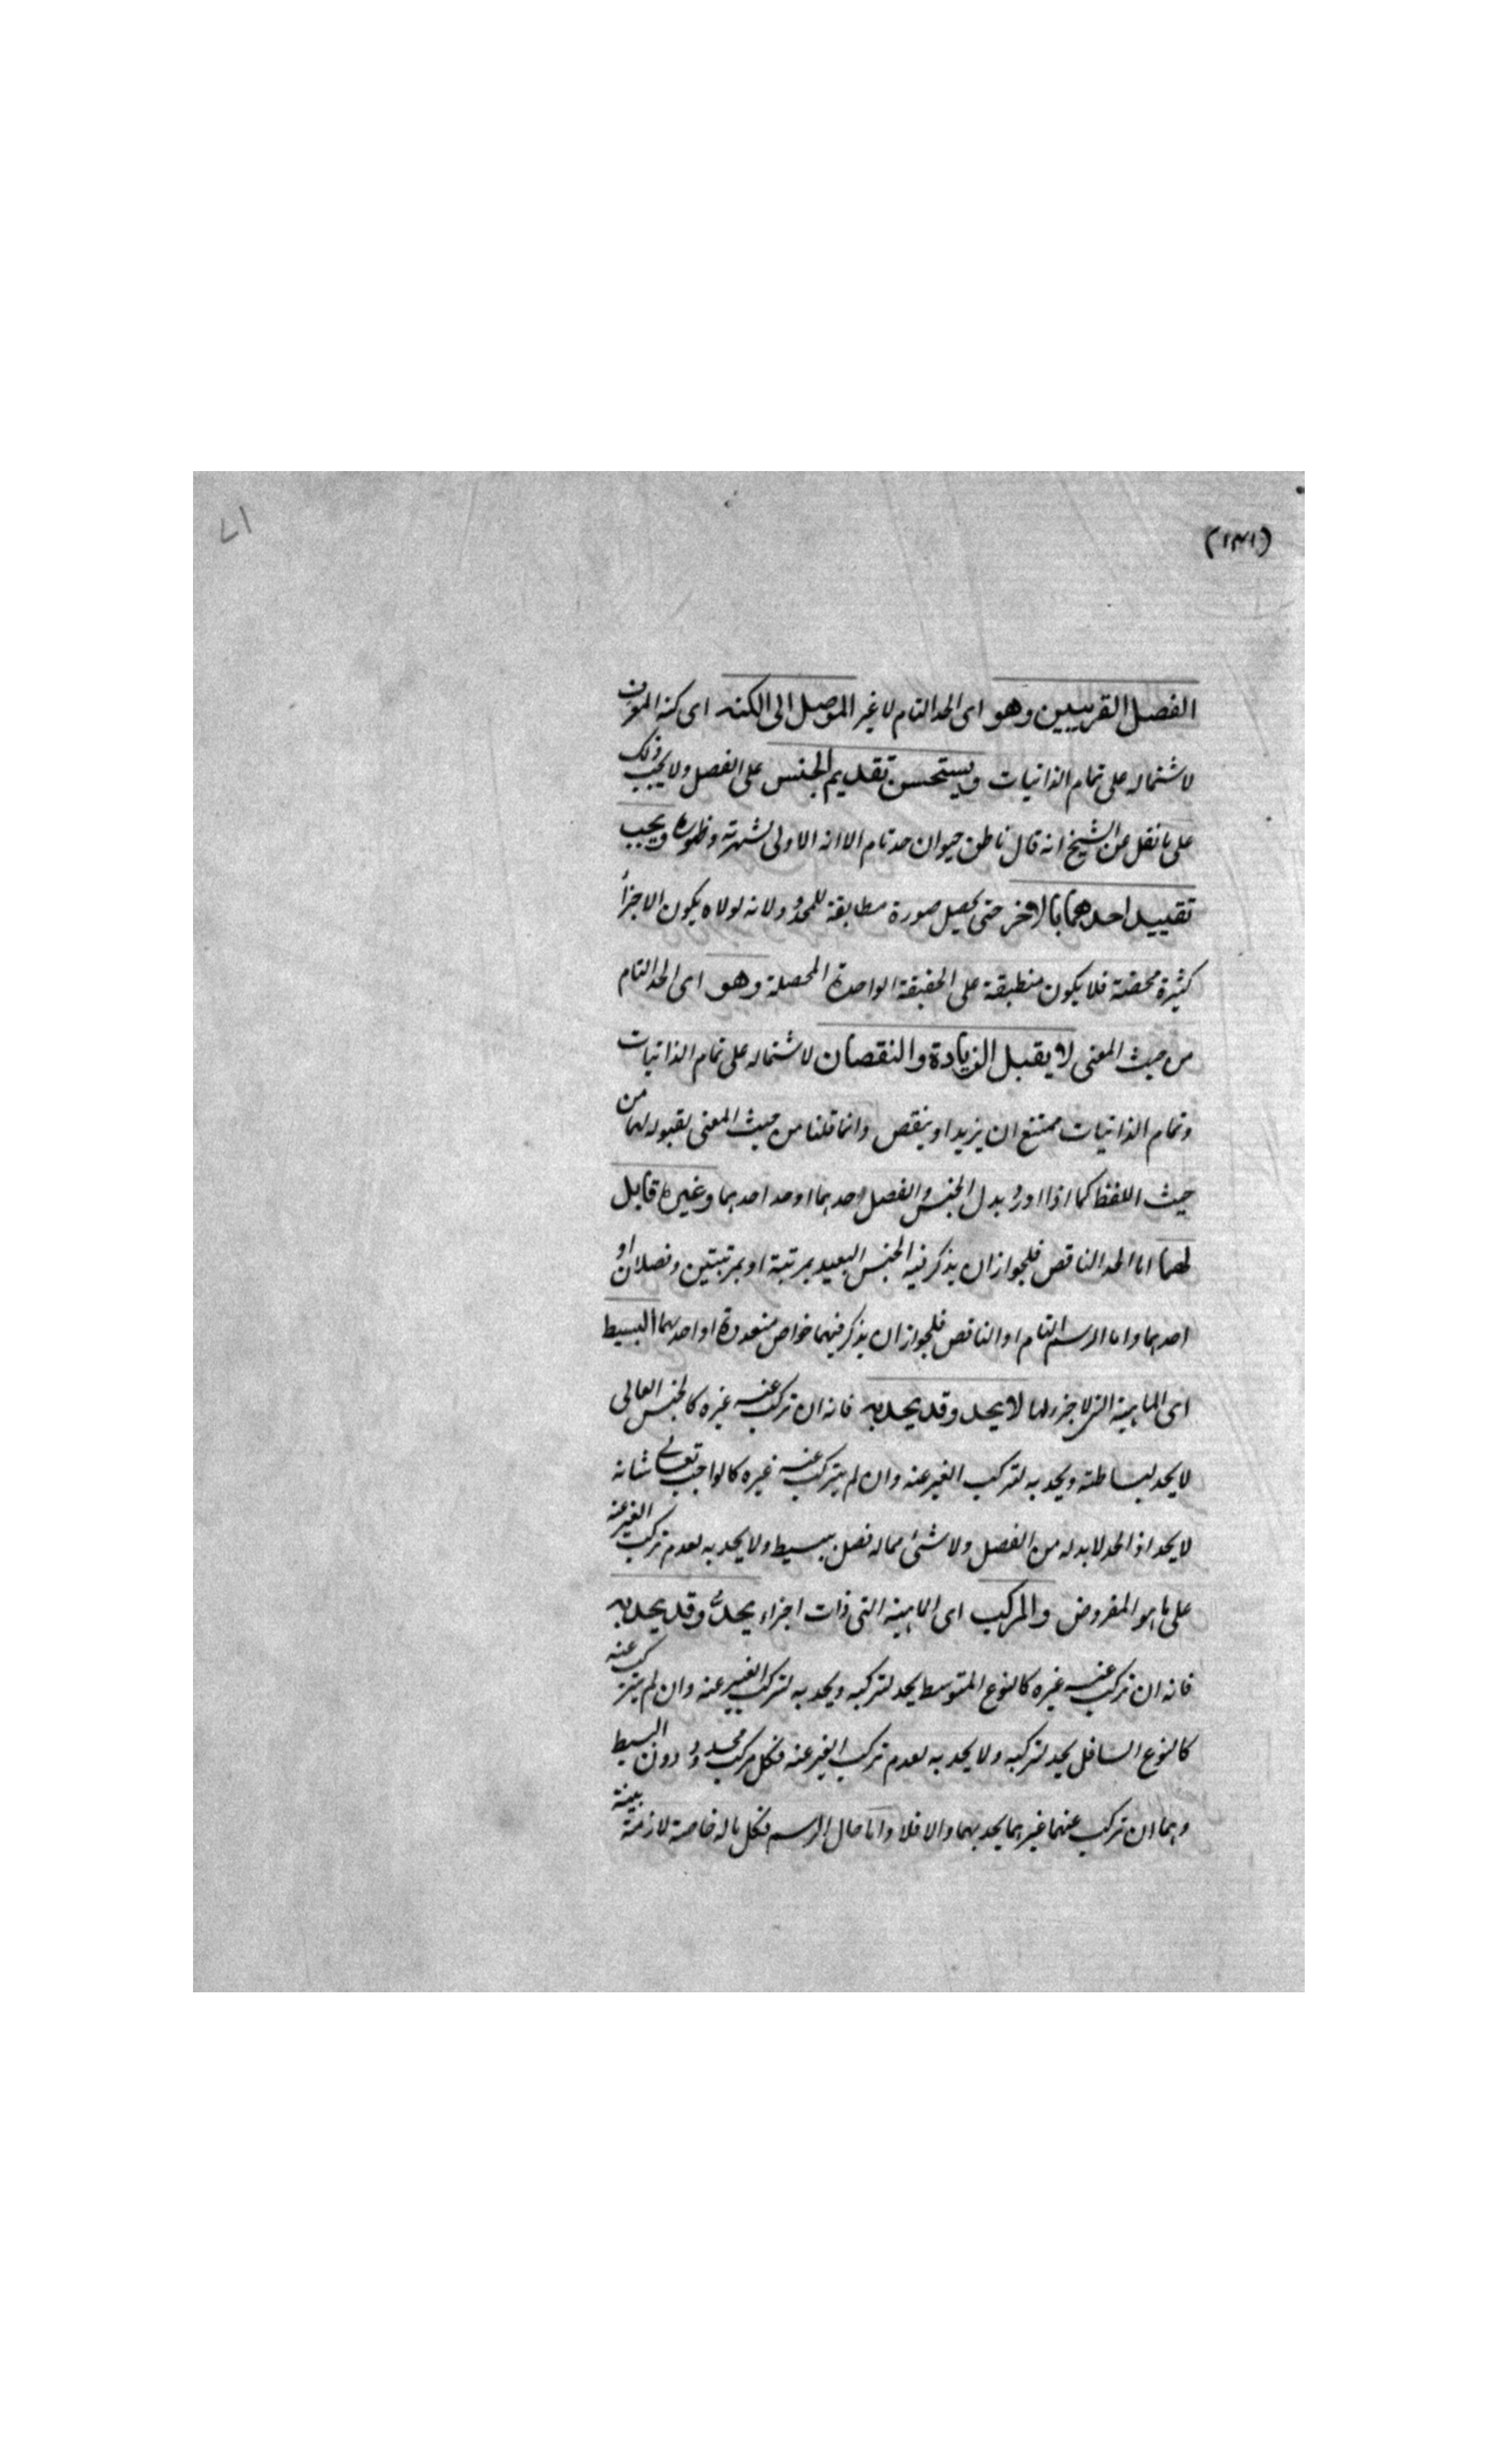 (١٤١)
٧١
الفصل القريبين وهو اى الحد التام لا غير الموصل الى الكنه اى كنه المعرف
لاشتماله على تمام الذاتيات ويستحسن تقديم الجنس على الفصل ولا يجب ذلك
على ما نقل عن الشيخ انه قال ناطق حيوان حد تام الا انه الاولى لشهرته وظهوره ويجب
تقييد احدهما بالاخر حتى يحصل صورة مطابقة للمحدود ولانه لولاه يكون الاجزأ
كثيرة محضة فلا يكون منطبقة على الحقيقة الواحدة المحصلة وهو اى الحد التام
من حيث المعنى لا يقبل الزيادة والنقصان لاشتماله على تمام الذاتيات
وتمام الذاتيات ممتنع ان يزيد او ينقص وانما قلنا من حيث المعنى لقبوله لهما من
حيث اللفظ كما اذا اورد بدل الجنس والفصل حدهما او حد احدهما وغيره قابل
لهما اما الحد الناقص فلجواز ان يذكر فيه الجنس البعيد بمرتبة او بمرتبتين وفصلان او
احدهما واما الرسم التام او الناقص فلجواز ان يذكر فيهما خواص متعددة او احدهما البسيط
اى الماهية التى لا جزء لها لا يحد وقد يحد به فانه ان تركب عنه غيره كالجنس العالى
لا يحد لبساطته ويحد به لتركب الغير عنه وان لم يتركب عنه غيره كالواجب تعالى شانه
لا يحد اذ الحد لابد له من الفصل ولا شئ مما له فصل ببسيط ولا يحد به لعدم تركب الغير عنه
على ما هو المفروض والمركب اى الماهية التى ذات اجزاء يحد وقد يحد به
فانه ان تركب عنه غيره كالنوع المتوسط يحد لتركبه ويحد به لتركب الغير عنه وان لم يتركب عنه
كالنوع السافل يحد لتركبه ولا يحد به لعدم تركب الغير عنه فكل مركب محدود دون البسيط
وهما ان تركب عنهما غيرهما يحد بهما والا فلا واما حال الرسم فكل ما له خاصة لازمة بينة